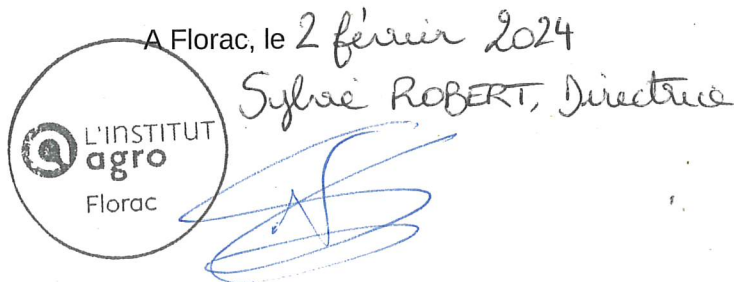 A Florac, le 2 février 2024
Sylvie ROBERT, Directrice
L'INSTITUT
agro
Florac